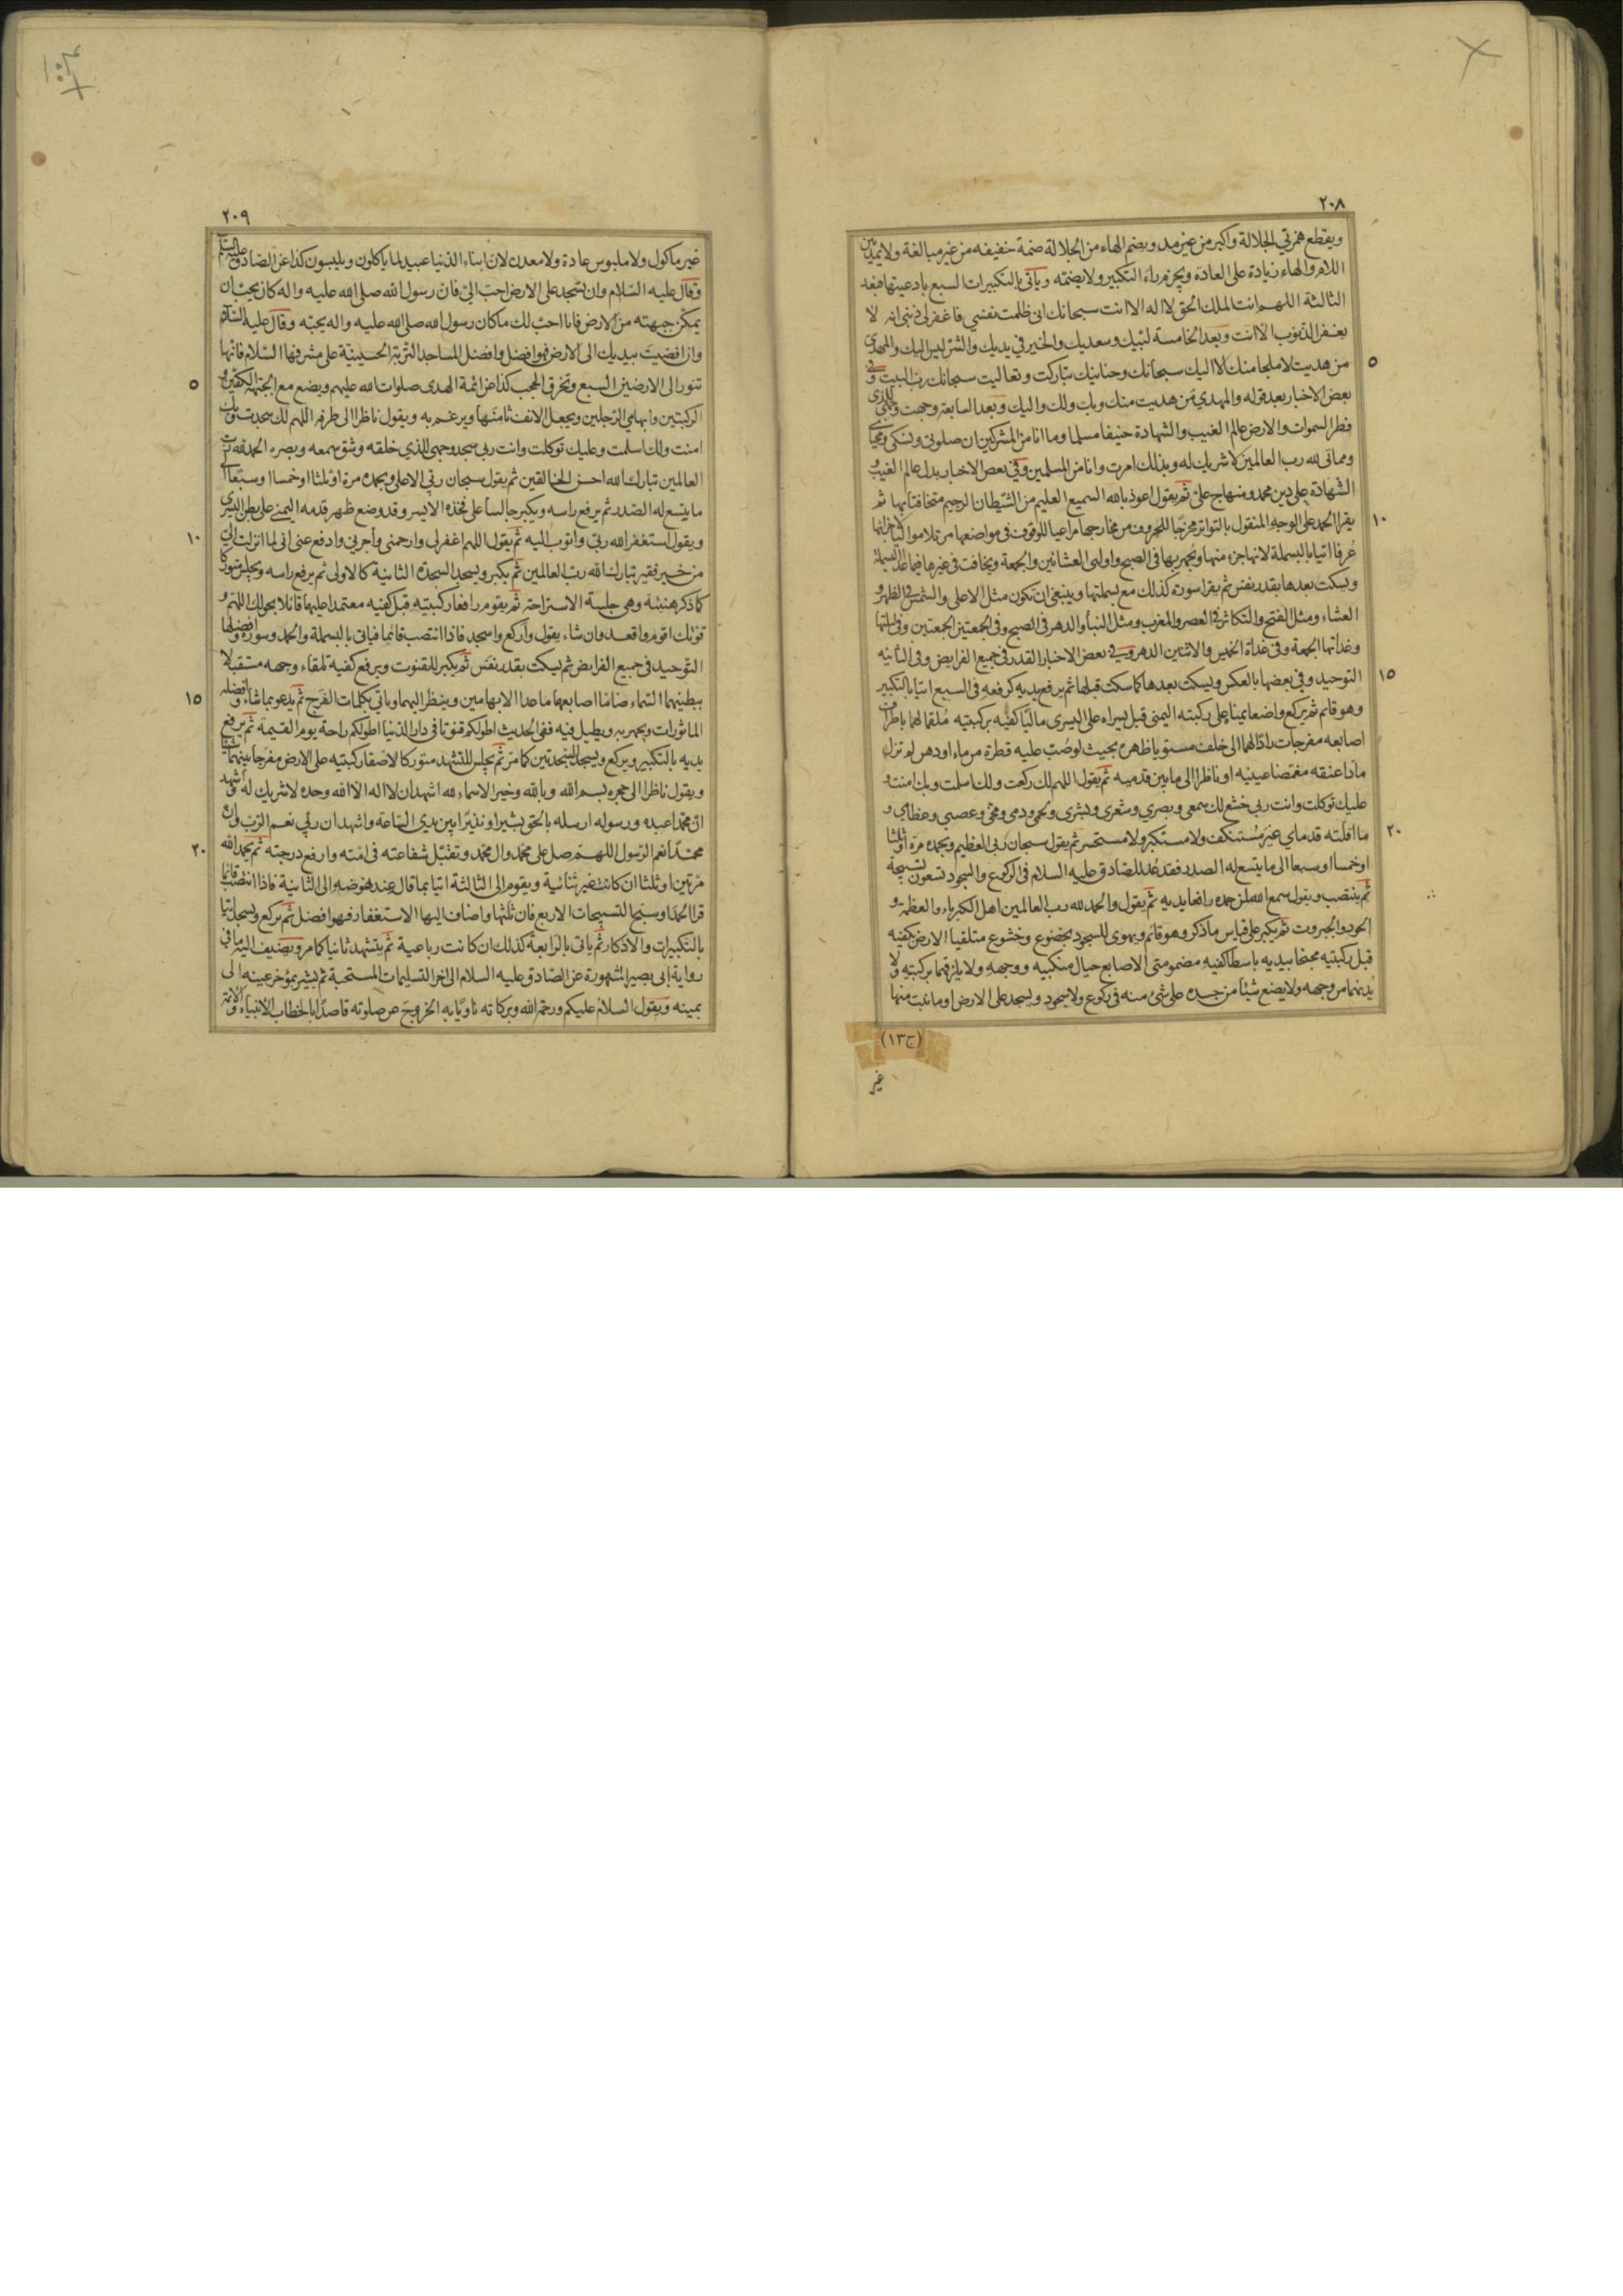 ٢٠٨
ويقطع همزتي الجلالة واكبر من غير مد ويضم الهاء من الجلالة ضمة خفيفه من غير مبالغة ولا يمد بين
اللام والهاء زيادة على العادة ويجزم راء التكبير ولا يضمّه وياتي بالتكبيرات السبع بادعيتها فبعد
الثالثة اللهم انت الملك الحق لا اله الا انت سبحانك انى ظلمت نفسي فاغفر لى ذنبى انه لا
يغفر الذنوب الا انت وبعد الخامسة لبيك وسعديك والخير في يديك والشر ليس اليك والمهدي
٥
من هديت لا ملجا منك الا اليك سبحانك وحنانيك تباركت وتعاليت سبحانك رب البيت وفي
بعض الاخبار بعد قوله والمهدي من هديت منك وبك ولك واليك وبعد السابعة وجهت وجهي للذى
فطر السموات والارض عالم الغيب والشهادة حنيفا مسلما وما انا من المشركين ان صلوتى ونسكى ومحياى
ومماتى لله رب العالمين لا شريك له وبذلك امرت وانا من المسلمين وفي بعض الاخبار بدل عالم الغيب و
الشهادة على دين محمد ومنهاج علىّ ثم يقول اعوذ بالله السميع العليم من الشيطان الرجيم متخافتا بها ثم
١٠
يقرا الحمد على الوجه المنقول بالتواتر مخرجا للحروف من مخارجها مراعيا للوقوف فى مواضعها مرتلا مواليا لاجزائها
عُرفا اتيا بالبسملة لانها جزء منها ويجهر بها فى الصبح واولى العشائين والجمعة ويخافت فى غيرها فيما عدا البسملة
ويسكت بعدها بقدر نفس ثم يقرا سورة كذلك مع بسملتها وينبغي ان تكون مثل الاعلى والشمس فى الظهر و
العشاء ومثل الفتح والتكاثر فى العصر والمغرب ومثل النبأ والدهر فى الصبح وفى الجمعتين الجمعتين وفى ليلتها
وغداتها الجمعة وفى غداة الخميس والاثنين الدهر وفي بعض الاخبار القدر فى جميع الفرايض وفى الثانيه
١٥
التوحيد وفي بعضها بالعكس ويسكت بعدها كما سكت قبلها ثم يرفع يديه كرفعه فى السبع اتيا بالتكبير
وهو قائم ثم يركع واضعا يمناه على ركبته اليمنى قبل يسراه على اليسرى ماليا كفيه بركبتيه مُلقما لهما باطراف
اصابعه مفرجات رادا لهما الى خلف مستويا ظهره بحيث لو صُبّ عليه قطرة من ماء او دهن لم تزل
مادا عنقه مغمضا عينيه او ناظرا الى ما بين قدميه ثم يقول اللهم لك ركعت ولك اسلمت وبك امنت و
عليك توكلت وانت ربى خشع لك سمعى وبصري وشعري وبشرى ولحمى ودمى ومخى وعصبى وعظامى و
٢٠
ما اقلّته قدماى غير مُستنكف ولا مستكبر ولا مستحسر ثم يقول سبحان ربى العظيم وبحمده مرة او ثلثا
او خمسا او سبعا الى ما يتسع له الصدر فقد عُد للصادق عليه السلام فى الركوع والسجود ستون تسبيحة
ثم ينتصب ويقول سمع الله لمن حمده رافعا يديه ثم يقول والحمد لله رب العالمين اهل الكبرياء والعظمة و
الجود والجبروت ثم يكبر على قياس ما ذكر وهو قائم ويهوى للسجود بخضوع وخشوع متلقيا الارض بكفيه
قبل ركبتيه مجنحا بيديه باسطا كفيه مضمومتى الاصابع حيال منكبيه ووجهه ولا يلزقهما بركبتيه ولا
يُدنهما من وجهه ولا يضع شيئا من جسده على شئ منه فى ركوع ولا سجود ويسجد على الارض او ما نبت منها
(ج١٣)
غير
٢٠٩
غير ماكول ولا ملبوس عادة ولا معدن لان ابناء الدنيا عبيد لما ياكلون ويلبسون كذا عن الصادق عليه السلام
وقال عليه السلام وان تسجد على الارض احب الىّ فان رسول الله صلى الله عليه واله كان يحب ان
يمكّن جبهته من الارض فانا احب لك ما كان رسول الله صلى الله عليه واله يحبه وقال عليه السلام
وان افضيت بيديك الى الارض فهو افضل وافضل المساجد التربة الحسينية على مشرفها السلام فانها
٥
تنور الى الارضين السبع وتخرق الحجب كذا عن ائمة الهدى صلوات الله عليهم ويضع مع الجبهة الكفين و
الركبتين وابهامي الرجلين ويجعل الانف ثامنَها ويرغم به ويقول ناظرا الى طرفه اللهم لك سجدت وبك
امنت ولك اسلمت وعليك توكلت وانت ربى سجد وجهى للذي خلقه وشق سمعه وبصره الحمد لله رب
العالمين تبارك الله احسن الخالقين ثم يقول سبحان ربى الاعلى وبحمده مرة او ثلثا او خمسا او سبعا الى
ما يتسع له الصدر ثم يرفع راسه ويكبر جالسا على فخذه الايسر وقد وضع ظهر قدمه اليمنى على بطن اليسرى
١٠
ويقول استغفر الله ربى واتوب اليه ثم يقول اللهم اغفر لى وارحمنى وأجرنى وادفع عنى انى لما انزلت الىّ
من خير فقير تبارك الله رب العالمين ثم يكبر ويسجد السجدة الثانية كالاولى ثم يرفع راسه ويجلس متوركا
كما ذكر هنيئة وهى جلسة الاستراحة ثم يقوم رافعا ركبتيه قبل كفيه معتمدا عليها قائلا بحولك اللهم و
قوتك اقوم واقعد وان شاء يقول وأركع واسجد فاذا انتصب قائما فياتى بالبسملة والحمد وسورة وافضلها
التوحيد فى جميع الفرايض ثم يسكت بقدر نفس ثم يكبر للقنوت ويرفع كفيه تلقاء وجهه مستقبلا
١٥
ببطنيهما السماء ضاما اصابعهما ما عدا الابهامين وينظر اليهما وياتى بكلمات الفرج ثم يدعو بما شاء وافضله
الماثورات ويجهر به ويطيل فيه ففى الحديث اطولكم قنوتا فى دار الدنيا اطولكم راحة يوم القيمة ثم يرفع
يديه بالتكبير ويركع ويسجد السجدتين كما مر ثم يجلس للتشهد متوركا لاصقا ركبتيه على الارض مفرجا بينهما شيئا
ويقول ناظرا الى حجره بسم الله وبالله وخير الاسماء لله اشهد ان لا اله الا الله وحده لا شريك له وأشهد
انّ محمّدا عبده ورسوله ارسله بالحق بشيرا ونذيرا بين يدى الساعة واشهد ان ربّى نعم الرّب وان
٢٠
محمّدا نعم الرّسول اللهم صل على محمّد وال محمّد وتقبّل شفاعته فى امّته وارفع درجته ثم يحمد الله
مرّتين او ثلثا ان كانت غير ثنائية ويقوم الى الثالثة اتيا بما قال عند نهوضه الى الثانية فاذا انتصب قائما
قرا الحمد او سبح التسبيحات الاربع فان ثلثها واضاف اليها الاستغفار فهو افضل ثم يركع ويسجد اتيا
بالتكبيرات والاذكار ثم ياتى بالرابعة كذلك ان كانت رباعية ثم يتشهد ثانيا كما مر ويضيف اليه ما فى
رواية ابى بصير المشهورة عن الصادق عليه السلام الى اخر التسليمات المستحبة ثم يشير بمؤخر عينه الى
يمينه ويقول السلام عليكم ورحمة الله وبركاته ناويا به الخروج عن صلوته قاصدا بالخطاب الانبياء والائمة